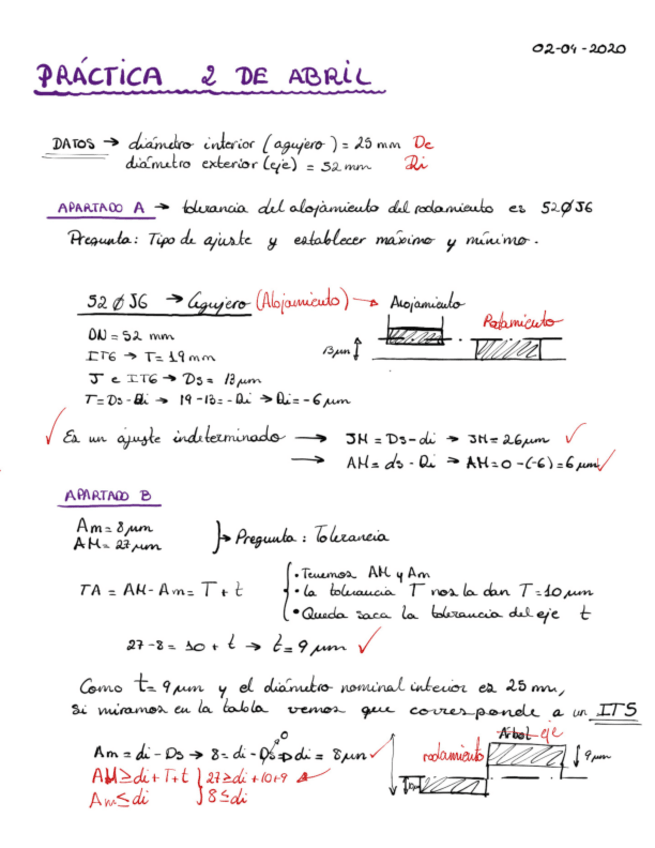 02-04-2020
PRÁCTICA 2 DE ABRIL
DATOS → diámetro interior (agujero) = 25 mm De
diámetro exterior (eje) = 52 mm Di
APARTADO A → tolerancia del alojamiento del rodamiento es 52∅J6
Pregunta: Tipo de ajuste y establecer máximo y mínimo.
52∅J6 → Agujero (Alojamiento) → Alojamiento
Rodamiento
DN = 52 mm
IT6 → T = 19 mm
13 µm
J e IT6 → Ds = 13 µm
T = Ds - Di → 19 - 13 = -Di → Di = -6 µm
✓ Es un ajuste indeterminado → JM = Ds - di → JM = 26 µm ✓
→ AM = ds - Di → AM = 0 - (-6) = 6 µm ✓
APARTADO B
Am = 8 µm
AM = 27 µm
} → Pregunta: Tolerancia
TA = AM - Am = T + t
{ • Tenemos AM y Am
• la tolerancia T nos la dan T = 10 µm
• Queda saca la tolerancia del eje t
27 - 8 = 10 + t → t = 9 µm ✓
Como t = 9 µm y el diámetro nominal interior es 25 mm,
si miramos en la tabla vemos que corresponde a un IT5
Árbol eje
Am = di - Ds → 8 = di - Ds 0 ⇒ di = 8 µm ✓
rodamiento
9 µm
AM ≥ di + T + t } 27 ≥ di + 10 + 9
Am ≤ di } 8 ≤ di